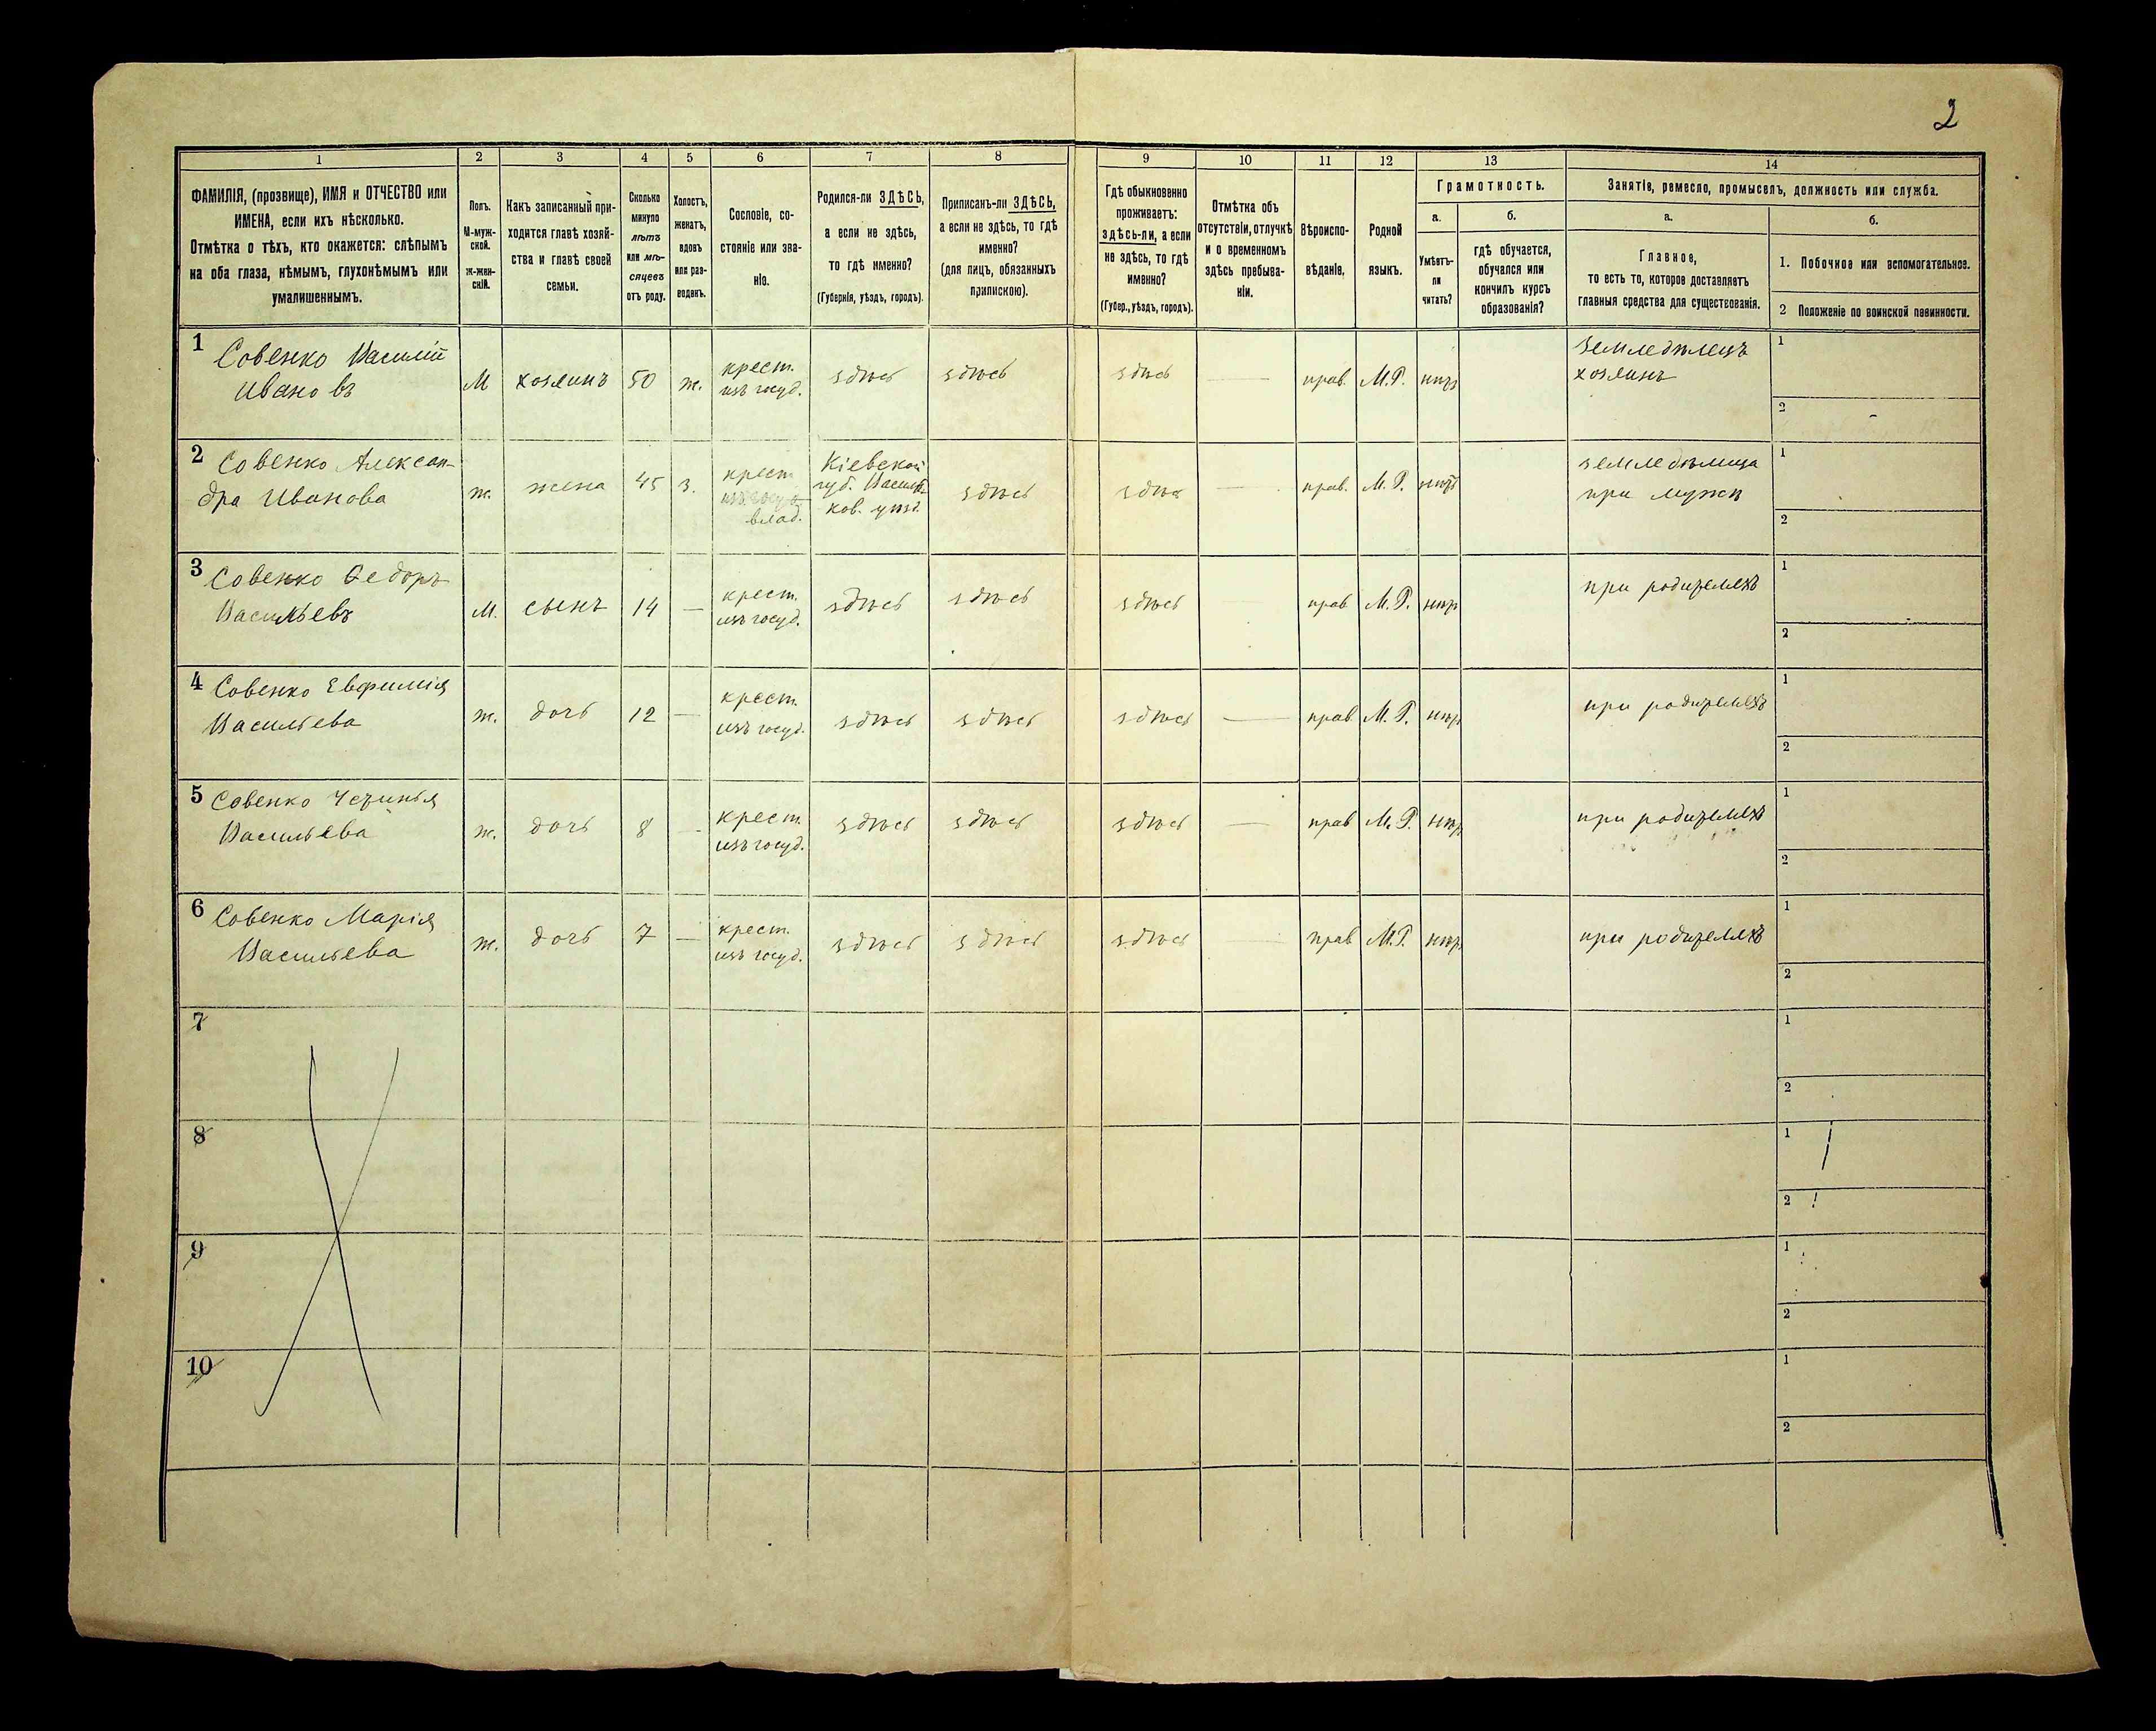 2
1 2 3 4 5 6 7 8 9 10 11 12 13 14
ФАМИЛІЯ, (прозвище), ИМЯ и ОТЧЕСТВО или
ИМЕНА, если ихъ нѣсколько.
Отмѣтка о тѣхъ, кто окажется: слѣпымъ
на оба глаза, нѣмымъ, глухонѣмымъ или
умалишеннымъ.
Полъ.
М-муж-
ской.
Ж-жен-
скій.
Какъ записанный при-
ходится главѣ хозяй-
ства и главѣ своей
семьи.
Сколько
минуло
лѣтъ
или мѣ-
сяцевъ
отъ роду.
Холостъ,
женатъ,
вдовъ
или раз-
веденъ.
Сословіе, со-
стояніе или зва-
ніе.
Родился-ли ЗДѢСЬ,
а если не здѣсь,
то гдѣ именно?
(Губернія, уѣздъ, городъ).
Приписанъ-ли ЗДѢСЬ,
а если не здѣсь, то гдѣ
именно?
(для лицъ, обязанныхъ
припискою).
Гдѣ обыкновенно
проживаетъ:
здѣсь-ли, а если
не здѣсь, то гдѣ
именно?
(Губер., уѣздъ, городъ).
Отмѣтка объ
отсутствіи, отлучкѣ
и о временномъ
здѣсь пребыва-
ніи.
Вѣроиспо-
вѣданіе.
Родной
языкъ.
Грамотность.
а.
Умѣетъ-
ли
читать?
б.
гдѣ обучается,
обучался или
кончилъ курсъ
образованія?
Занятіе, ремесло, промыселъ, должность или служба.
а.
Главное,
то есть то, которое доставляетъ
главныя средства для существованія.
б.
1. Побочное или вспомогательное.
2 Положеніе по воинской повинности.
1 Совенко Василій
Ивановъ
М хозяинъ 50 ж. крест.
изъ госуд. здѣсь здѣсь здѣсь — прав. М.Р. нѣтъ
земледѣлецъ
хозяинъ
1
2
2 Совенко Алексан-
дра Иванова
ж. жена 45 з. крест
влад.
Кіевской
губ. Василь-
ков. уѣзд.
здѣсь здѣсь — прав. М.Р. нѣтъ
земледѣлица
при мужѣ
1
2
3 Совенко Ѳедоръ
Васильевъ
М. сынъ 14 — крест.
изъ госуд. здѣсь здѣсь здѣсь — прав М.Р. нѣтъ
при родителяхъ
1
2
4 Совенко Евфимія
Васильева
ж. дочь 12 — крест.
изъ госуд. здѣсь здѣсь здѣсь — прав М.Р. нѣтъ
при родителяхъ
1
2
5 Совенко
Васильева
ж. дочь 8 - крест.
изъ госуд. здѣсь здѣсь здѣсь — прав М.Р. нѣтъ
при родителяхъ
1
2
6 Совенко Марія
Васильева
ж. дочь 7 — крест.
изъ госуд. здѣсь здѣсь здѣсь — прав М.Р. нѣтъ
при родителяхъ
1
2
7
1
2
8
1
2
9
1
2
10
1
2